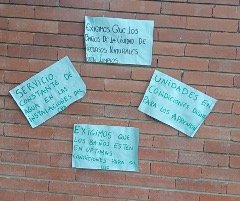 EXIGIMOS QUE LOS
BAÑOS DE LA CIUDAD DE
RECURSOS NATURALES
SERVICIO
CONSTANTE DE
AGUA EN LAS
INSTALACIONES
UNIDADES EN
CONDICIONES
PARA LOS
EXIGIMOS QUE
LOS BAÑOS ESTEN
EN OPTIMAS
CONDICIONES PARA SU